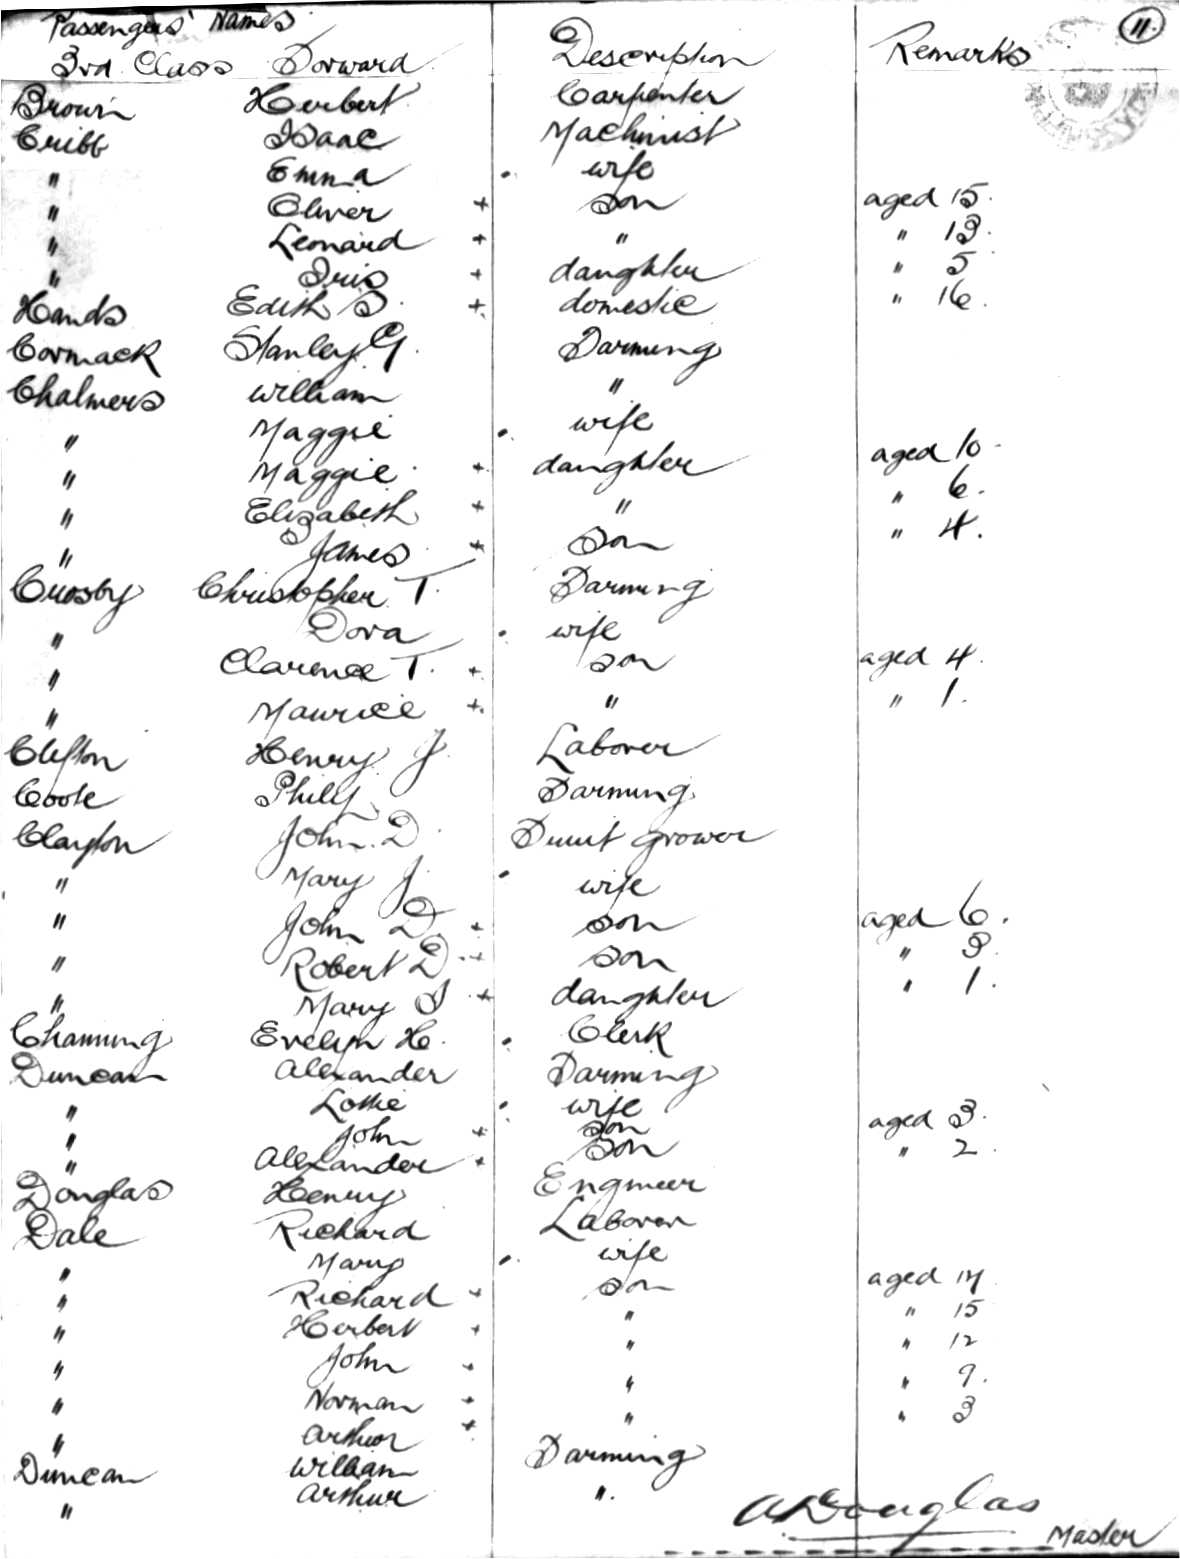 11.
Passengers' Names
3rd Class Forward Description Remarks
Brown Herbert Carpenter
Cribb Isaac Machinist
" Emma . wife
" Oliver + son aged 15.
" Leonard + " " 13.
" Iris + daughter " 5
Hands Edith S. + domestic " 16.
Cormack Stanley G. Farming
Chalmers William "
" Maggie . wife
" Maggie + daughter aged 10
" Elizabeth + " " 6.
" James + son " 4.
Crosby Christopher T. Farming
" Dora . wife
" Clarence T. + son aged 4.
" Maurice + " " 1.
Clifton Henry J. Laborer
Coole Philip Farming
Clayton John D. Fruit grower
" Mary J. . wife
" John D. + son aged 6.
" Robert D. + son " 3.
" Mary I + daughter " 1.
Channing Evelyn H. . Clerk
Duncan Alexander Farming
" Lottie . wife
" John + son aged 3.
" Alexander + son " 2.
Douglas Henry Engineer
Dale Richard Laborer
" Mary . wife
" Richard + son aged 17
" Herbert + " " 15
" John + " " 12
" Norman + " " 9.
" Arthur + " " 3
Duncan William Farming
" Arthur ".
A Douglas
Master